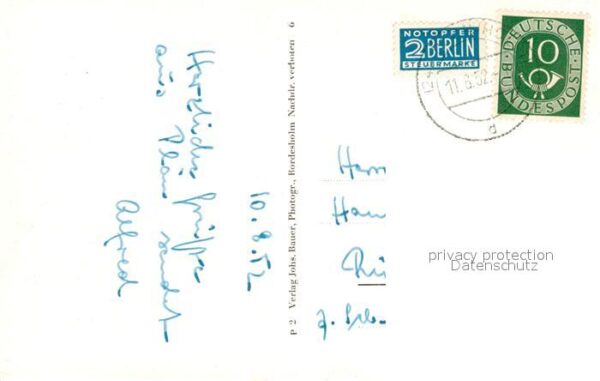 Herzliche Grüße
aus Plön sendet
Alfred
10.8.52
P 2 Verlag Johs. Bauer, Photogr., Bordesholm Nachdr. verboten 6
NOTOPFER
2 BERLIN
STEUERMARKE
DEUTSCHE
10
BUNDESPOST
11.8.52
d
Herrn
Han
privacy protection
Datenschutz